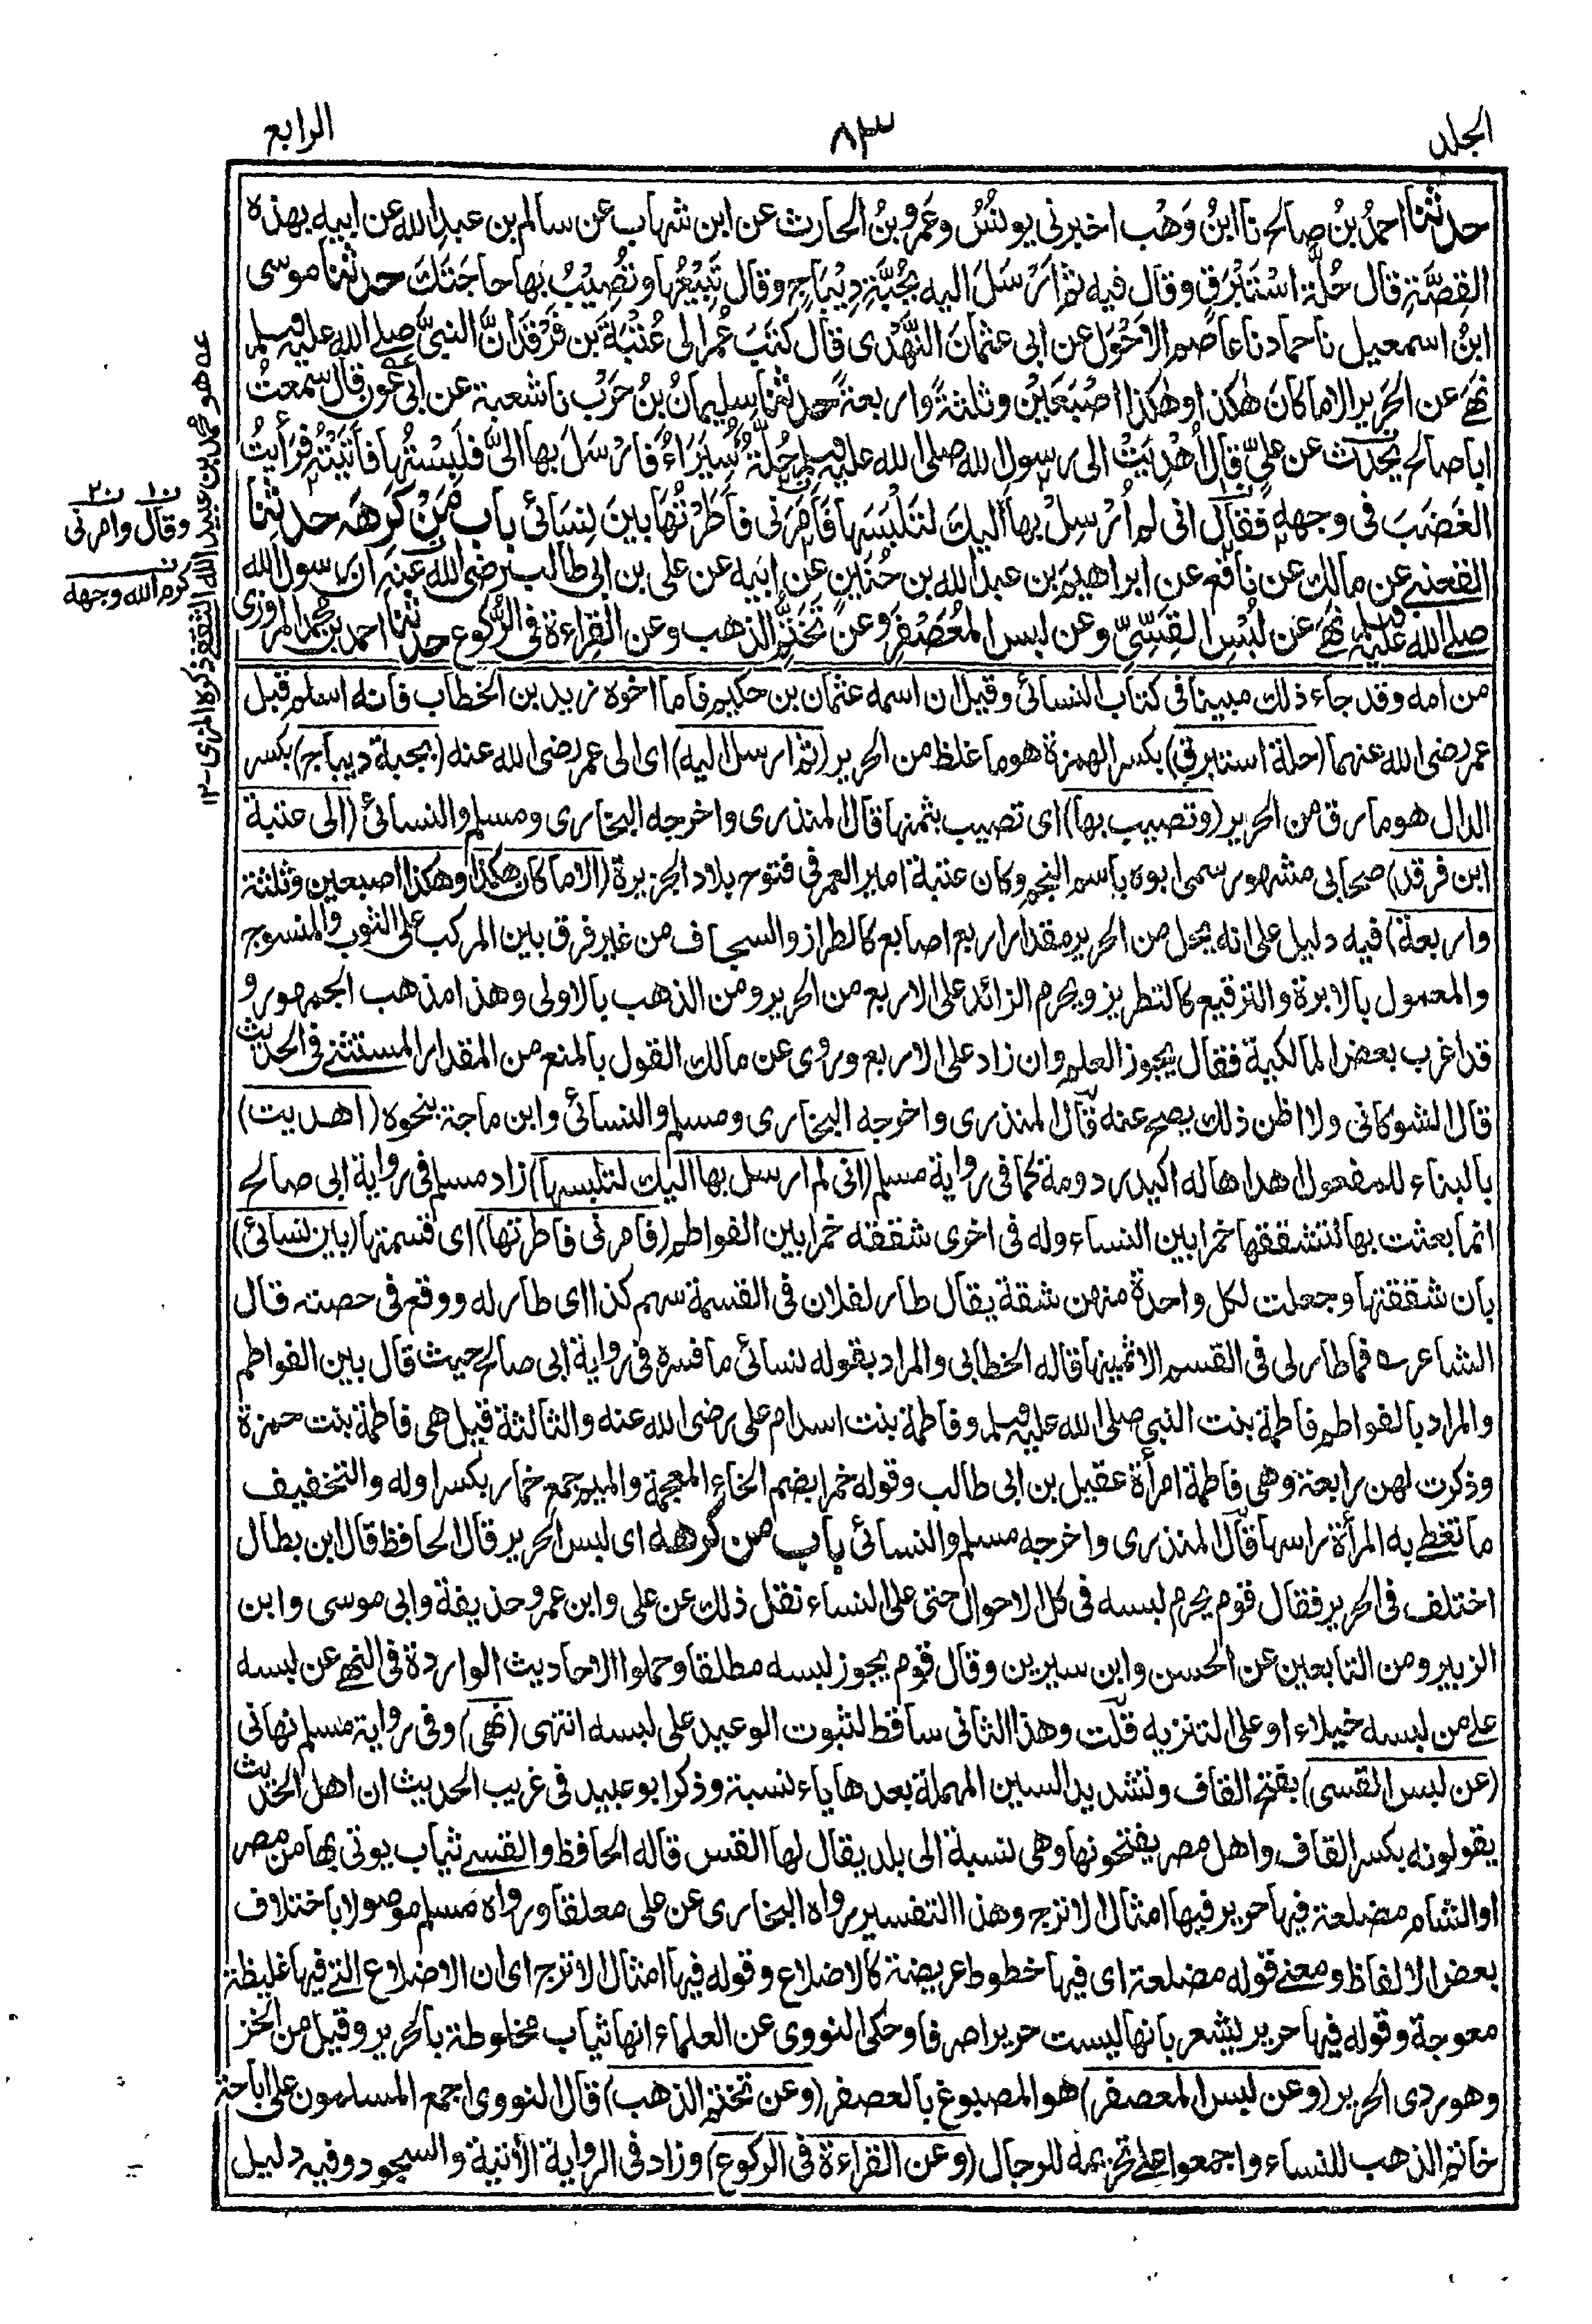 الجلد
٨٣
الرابع
حدثنا احمدُ بنُ صالح نا ابنُ وَهْب اخبرنى يونُسُ وعَمرُو بنُ الحارث عن ابن شهاب عن سالم بن عبدِالله عن ابيه بهذه
القِصَّةِ قال حُلَّةَ اسْتَبْرَقٍ وقال فيه ثم اَرْسَلَ اليه بجُبَّةِ دِيْبَاجٍ وقال تَبِيْعُها وتُصِيْبُ بها حاجَتَكَ حدثنا موسى
ابنُ اسمعيل نا حماد نا عاصم الاَحْوَل عن ابى عثمانَ النَّهْدِى قال كتَبَ عُمر الى عُتْبَةَ بن فَرْقَدٍ انَّ النبىَّ صلے الله عليه وسلم
نَهَى عن الحَرِير الا ما كانَ هٰكذا وهٰكذا اصْبَعَيْن وثلثةً واربعةً حدثنا سليمانُ بنُ حَرْب نا شعبة عن أبى عون قال سمعتُ
ابا صالح يُحَدِّث عن علىّ قال اُهْدِيَتْ الى رسول الله صلى الله عليه وسلم حُلَّةٌ سُيَرَاءُ فارْسَلَ بها اِلىَّ فلَبِسْتُها فاَتَيْتُه فرَأَيتُ
الغَضَبَ فى وجهه فقال انى لم اُرْسِلْ بها اليكَ لتَلْبَسَها فَاَمَرَنى فاَطَرْتُها بينَ نِسَائى باب مَنْ كَرِهَه حدثنا
القعنبے عن مالك عن نافع عن ابراهيم بن عبد الله بن حُنَين عن ابيه عن على بن ابى طالب رضى الله عنه ان رسول الله
صلے الله عليه وسلم نَهَى عن لُبْسِ القَسِّىِّ وعن لبس المُعَصْفَرِ وعن تَخَتُّمِ الذهب وعن القراءة فى الرُّكوع حدثنا احمد بن محمد المروزى
من امه وقد جاء ذلك مبينا فى كتاب النسائى وقيل ان اسمه عثمان بن حكيم فاما اخوه زيد بن الخطاب فانه اسلم قبل
عمر رضى الله عنهما (حلة استبرق) بكسر الهمزة هو ما غلظ من الحرير (ثم ارسل اليه) اى الى عمر رضى الله عنه (بجبة ديباج) بكسر
الدال هو ما رق من الحرير (وتصيب بها) اى تصيب بثمنها قال المنذرى واخرجه البخارى ومسلم والنسائى (الى عتبة
ابن فرقد) صحابى مشهور سمى ابوه باسم النجم وكان عتبة امير العمر فى فتوح بلاد الجزيرة (الا ما كان هكذا وهكذا اصبعين وثلثة
واربعة) فيه دليل على انه يحل من الحرير مقدار اربع اصابع كالطراز والسجاف من غير فرق بين المركب على الثوب والمنسوج
والمعمول بالابرة والترقيع كالتطريز ويحرم الزائد على الاربع من الحرير ومن الذهب بالاولى وهذا مذهب الجمهور و
قد اغرب بعض المالكية فقال يجوز العلم وان زاد على الاربع وروى عن مالك القول بالمنع من المقدار المستثنے فى الحديث
قال الشوكانى ولا اظن ذلك يصح عنه قال المنذرى واخرجه البخارى ومسلم والنسائى وابن ماجة بنحوه (اهديت)
بالبناء للمفعول اهداها له اكيدر دومة كما فى رواية مسلم (انى لم ارسل بها اليك لتلبسها) زاد مسلم فى رواية ابى صالح
انما بعثت بها لتشققها خمرا بين النساء وله فى اخرى شققه خمرا بين الفواطم (فامرنى فاطرتها) اى قسمتها (بين نسائى)
بان شققتها وجعلت لكل واحدة منهن شقة يقال طار لفلان فى القسمة سهم كذا اى طار له ووقع فى حصته قال
الشاعر ؎ فما طار لى فى القسم الا ثمينها قاله الخطابى والمراد بقوله نسائى ما فسره فى رواية ابى صالح حيث قال بين الفواطم
والمراد بالفواطم فاطمة بنت النبى صلى الله عليه وسلم وفاطمة بنت اسد ام على رضى الله عنه والثالثة قيل هى فاطمة بنت حمزة
وذكرت لهن رابعة وهى فاطمة امرأة عقيل بن ابى طالب وقوله خمرا بضم الخاء المعجمة والميم جمع خمار بكسر اوله والتخفيف
ما تغطے به المرأة راسها قال المنذرى واخرجه مسلم والنسائى باب من كرهه اى لبس الحرير قال الحافظ قال ابن بطال
اختلف فى الحرير فقال قوم يحرم لبسه فى كل الاحوال حتى على النساء نقل ذلك عن على وابن عمر وحذيفة وابى موسى وابن
الزبير ومن التابعين عن الحسن وابن سيرين وقال قوم يجوز لبسه مطلقا وحملوا الاحاديث الواردة فى النهے عن لبسه
علے من لبسه خيلاء او على التنزيه قلت وهذا الثانى ساقط لثبوت الوعيد على لبسه انتهى (نهى) وفى رواية مسلم نهانى
(عن لبس القسى) بفتح القاف وتشديد السين المهملة بعدها ياء نسبة وذكر ابو عبيد فى غريب الحديث ان اهل الحديث
يقولونه بكسر القاف واهل مصر يفتحونها وهى نسبة الى بلد يقال لها القس قاله الحافظ والقسے ثياب يوتى بها من مصر
او الشام مضلعة فيها حرير فيها امثال الاترج وهذا التفسير رواه البخارى عن على معلقا ورواه مسلم موصولا باختلاف
بعض الالفاظ ومعنے قوله مضلعة اى فيها خطوط عريضة كالاضلاع وقوله فيها امثال الاترج اى ان الاضلاع التے فيها غليظة
معوجة وقوله فيها حرير يشعر بانها ليست حريرا صرفا وحكى النووى عن العلماء انها ثياب مخلوطة بالحرير وقيل من الخز
وهو ردى الحرير (وعن لبس المعصفر) هو المصبوغ بالعصفر (وعن تختم الذهب) قال النووى اجمع المسلمون على اباحة
خاتم الذهب للنساء واجمعوا علے تحريمه للرجال (وعن القراءة فى الركوع) وزاد فى الرواية الآتية والسجود وفيه دليل
ن١ ن٢
وقال وامرنى
ن
كرم الله وجهه
عه هو محمد بن عبيد الله الثقفے ذكره المزى ١٢